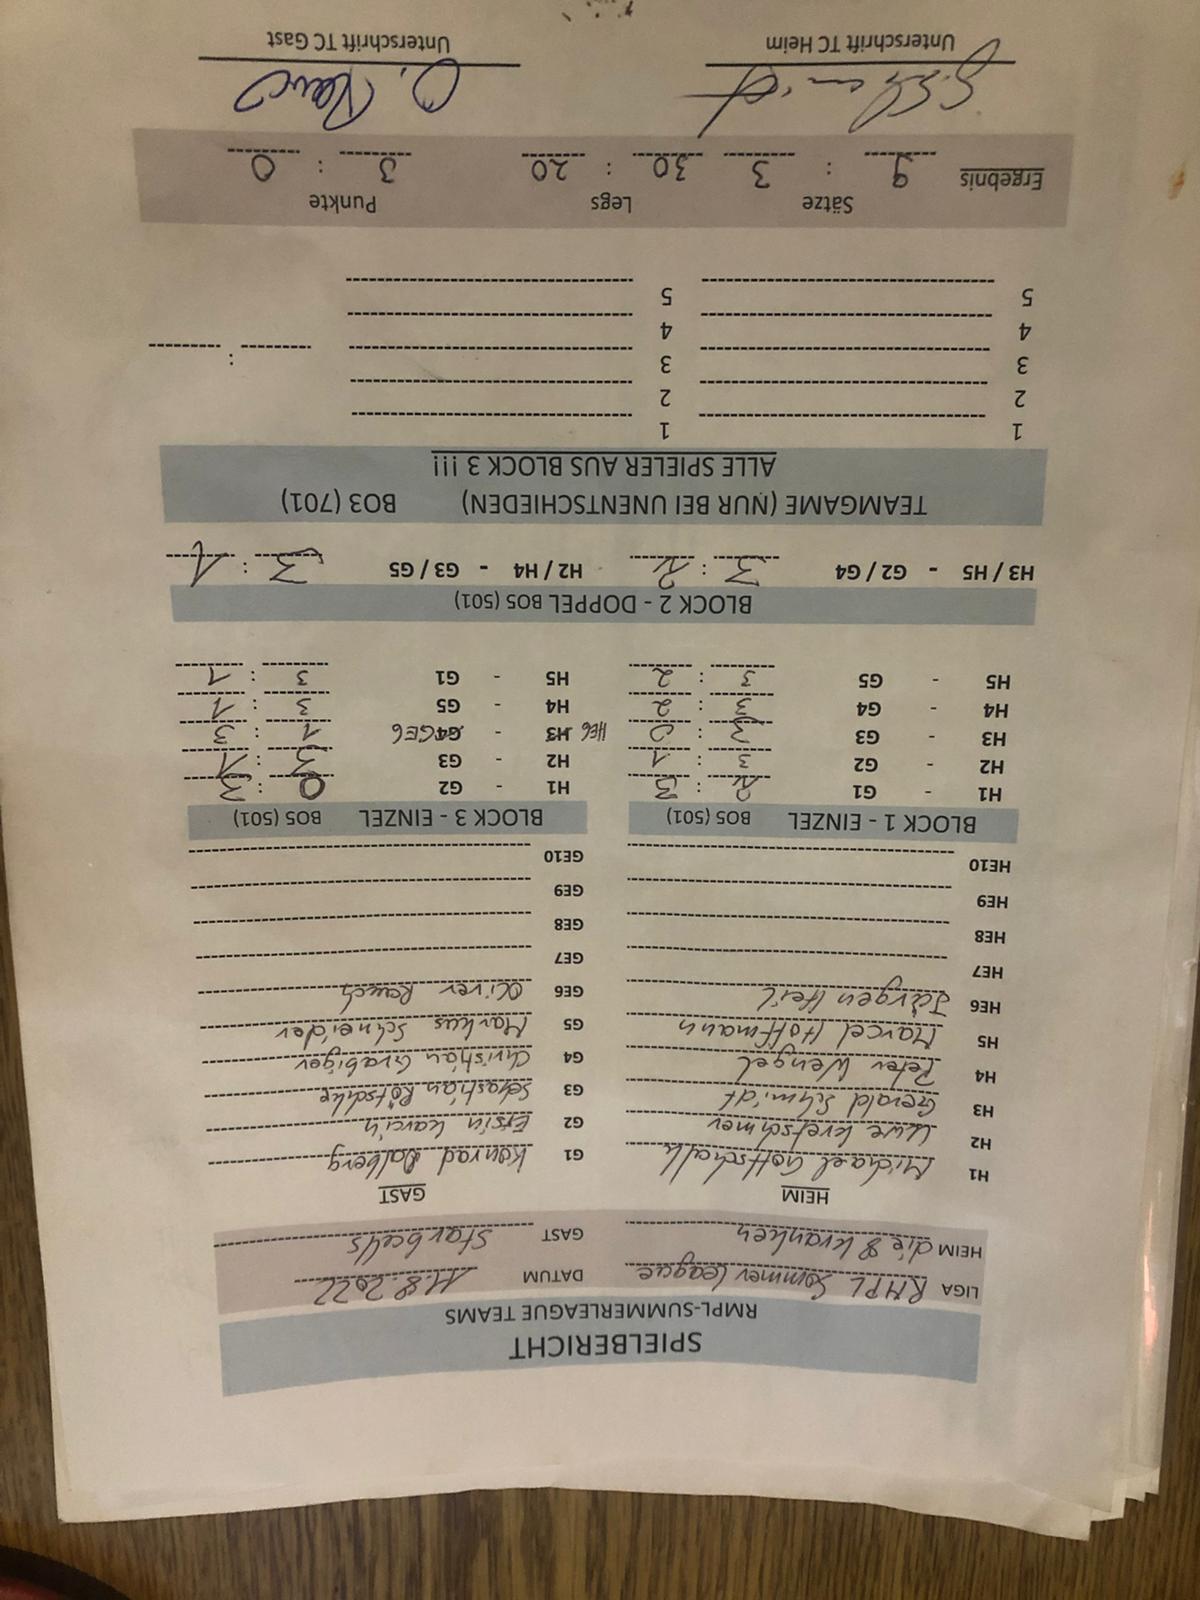 SPIELBERICHT
RMPL-SUMMERLEAGUE TEAMS
LIGA RMPL Sommer League DATUM 11.8.2022
HEIM die 8 kranken GAST Starbulls
HEIM GAST
H1 Michael Gottschalk G1 Konrad Dalberg
H2 Uwe Kretschmer G2 Ersin Karcin
H3 Gerald Schmidt G3 Sebastian Rötschke
H4 Peter Wengel G4 Christian Grabiger
H5 Marcel Hoffmann G5 Markus Schneider
HE6 Jürgen Heil GE6 Oliver Rauch
HE7 GE7
HE8 GE8
HE9 GE9
HE10 GE10
BLOCK 1 - EINZEL BO5 (501) BLOCK 3 - EINZEL BO5 (501)
H1 - G1 2 : 3 H1 - G2 0 : 3
H2 - G2 3 : 1 H2 - G3 3 : 1
H3 - G3 3 : 0 HE6 H3 - G4 GE6 1 : 3
H4 - G4 3 : 2 H4 - G5 3 : 1
H5 - G5 3 : 2 H5 - G1 3 : 1
BLOCK 2 - DOPPEL BO5 (501)
H3 / H5 - G2 / G4 3 : 2 H2 / H4 - G3 / G5 3 : 1
TEAMGAME (NUR BEI UNENTSCHIEDEN) BO3 (701)
ALLE SPIELER AUS BLOCK 3 !!!
1 1
2 2
3 3 :
4 4
5 5
Sätze Legs Punkte
Ergebnis 9 : 3 30 : 20 3 : 0
G. Schmidt O. Rauch
Unterschrift TC Heim Unterschrift TC Gast